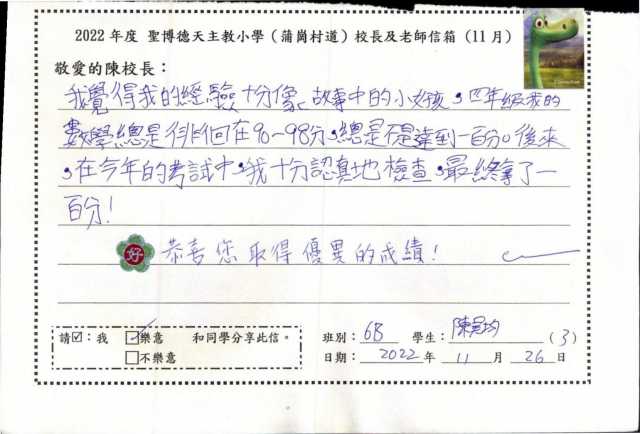 2022 年度 聖博德天主教小學（蒲崗村道）校長及老師信箱（11 月）
敬愛的陳校長：
我覺得我的經驗十分像故事中的小女孩，四年級我的
數學總是徘徊在90~98分，總是不是達到一百分。後來
，在今年的考試中，我十分認真地檢查，最終拿了一
百分！
好 恭喜您取得優異的成績！
請☑：我 ☑樂意 和同學分享此信。
□不樂意
班別：6B 學生：陳 均 (3)
日期：2022 年 11 月 26 日